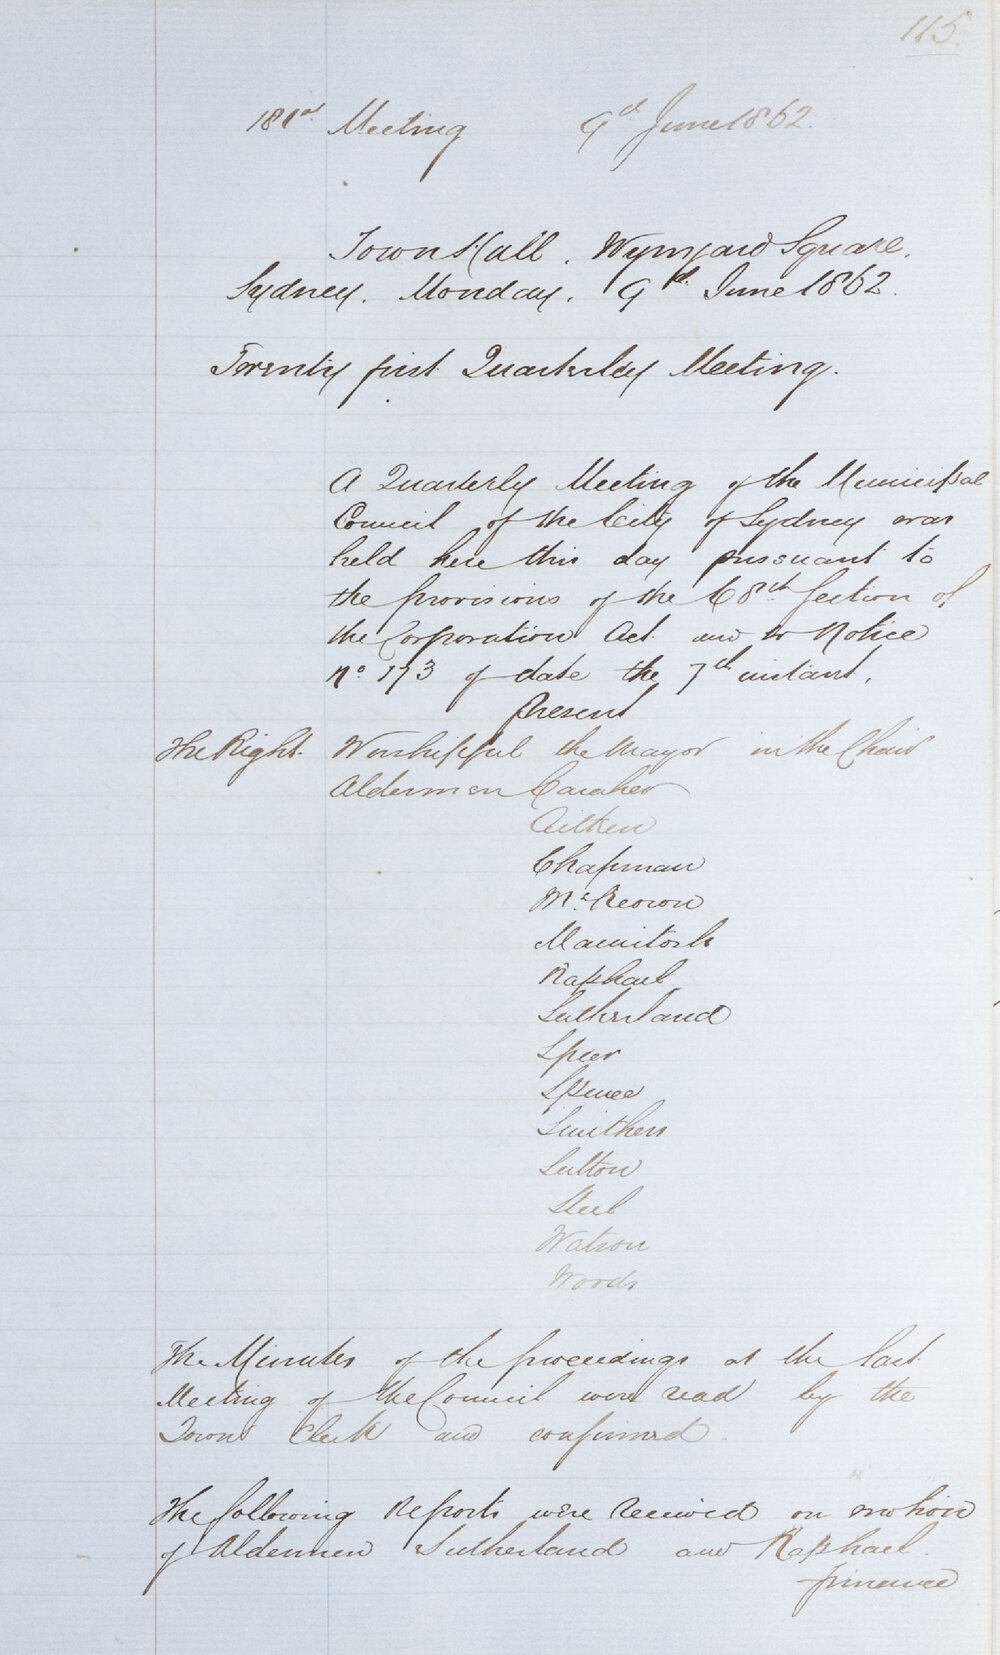 115.
181st Meeting 9th June 1862.
Town Hall. Wynyard Square.
Sydney. Monday. 9th June 1862.
Twenty first Quarterley Meeting.
A Quarterly Meeting of the Municipal
Council of the City of Sydney was
held here this day pursuant to
the provisions of the 68th Section of
the Corporation Act and to Notice
No. 173 of date the 7th instant.
Present
The Right Worshipful the Mayor in the Chair
Aldermen Caraher
Aitken
Chapman
McKeown
Macintosh
Raphael
Sutherland
Speer
Spence
Smithers
Sutton
Steel
Watson
Woods
The Minutes of the proceedings at the last
Meeting of the Council were read by the
Town Clerk and confirmed.
The following Reports were received on motion
of Aldermen Sutherland and Raphael.
finance